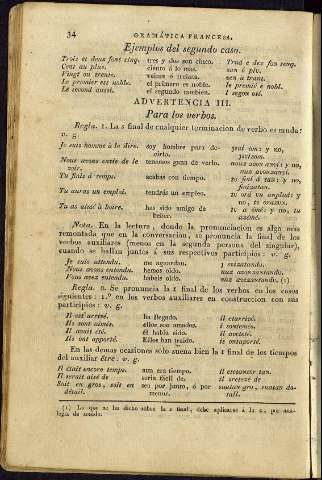 34 GRAMÁTICA FRANCESA.
Ejemplos del segundo caso.
Trois et deux font cinq. tres y dos son cinco. Troá e deo fon senq.
Cent au plus. ciento á lo mas. san ó plu.
Vingt ou trente. veinte ó treinta. ven u trant.
Le premier est noble. el primero es noble. le premié e nobl.
Le second aussi. el segundo tambien.
ADVERTENCIA III.
Para los verbos.
Regla. 1. La s final de cualquier terminacion de verbo es muda:
v. g
Je suis homme à le dire. soy hombre para decirlo.
Nous avons envie de le voir. tenemos gana de verlo.
Tu finis à temps. acabas con tiempo.
Tu auras un emploi. tendrás un empleo.
Tu as aimé à boire. has sido amigo de beber.
Nota. En la lectura, donde la pronunciacion es algo mas
remontada que en la conversacion, se pronuncia la s final de los
verbos auxiliares (menos en la segunda persona del singular),
cuando se hallan juntos á sus respectivos participios: v. g.
Je suis attendu. me aguardan.
Nous avons entendu. hemos oido.
Vous avez entendu. habeis oido.
Regla. 2. Se pronuncia la t final de los verbos en los casos
siguientes: 1.º en los verbos auxiliares en construccion con sus
participios: v. g.
Il est arrivé. ha llegado. il etarrivé.
Ils sont aimés. ellos son amados.
Il avait été. él habia sido.
Ils ont apporté. Ellos han traido.
En las demas ocasiones solo suena bien la t final de los tiempos
del auxiliar être: v. g.
Il était encore temps. aun era tiempo.
Il serait aisé de sería fácil de.
Soit en gros, soit en détail. sea por junto, ó por menor.
(1) Lo que se ha dicho sobre la s final, debe aplicarse á la z, por analogía
de sonido.